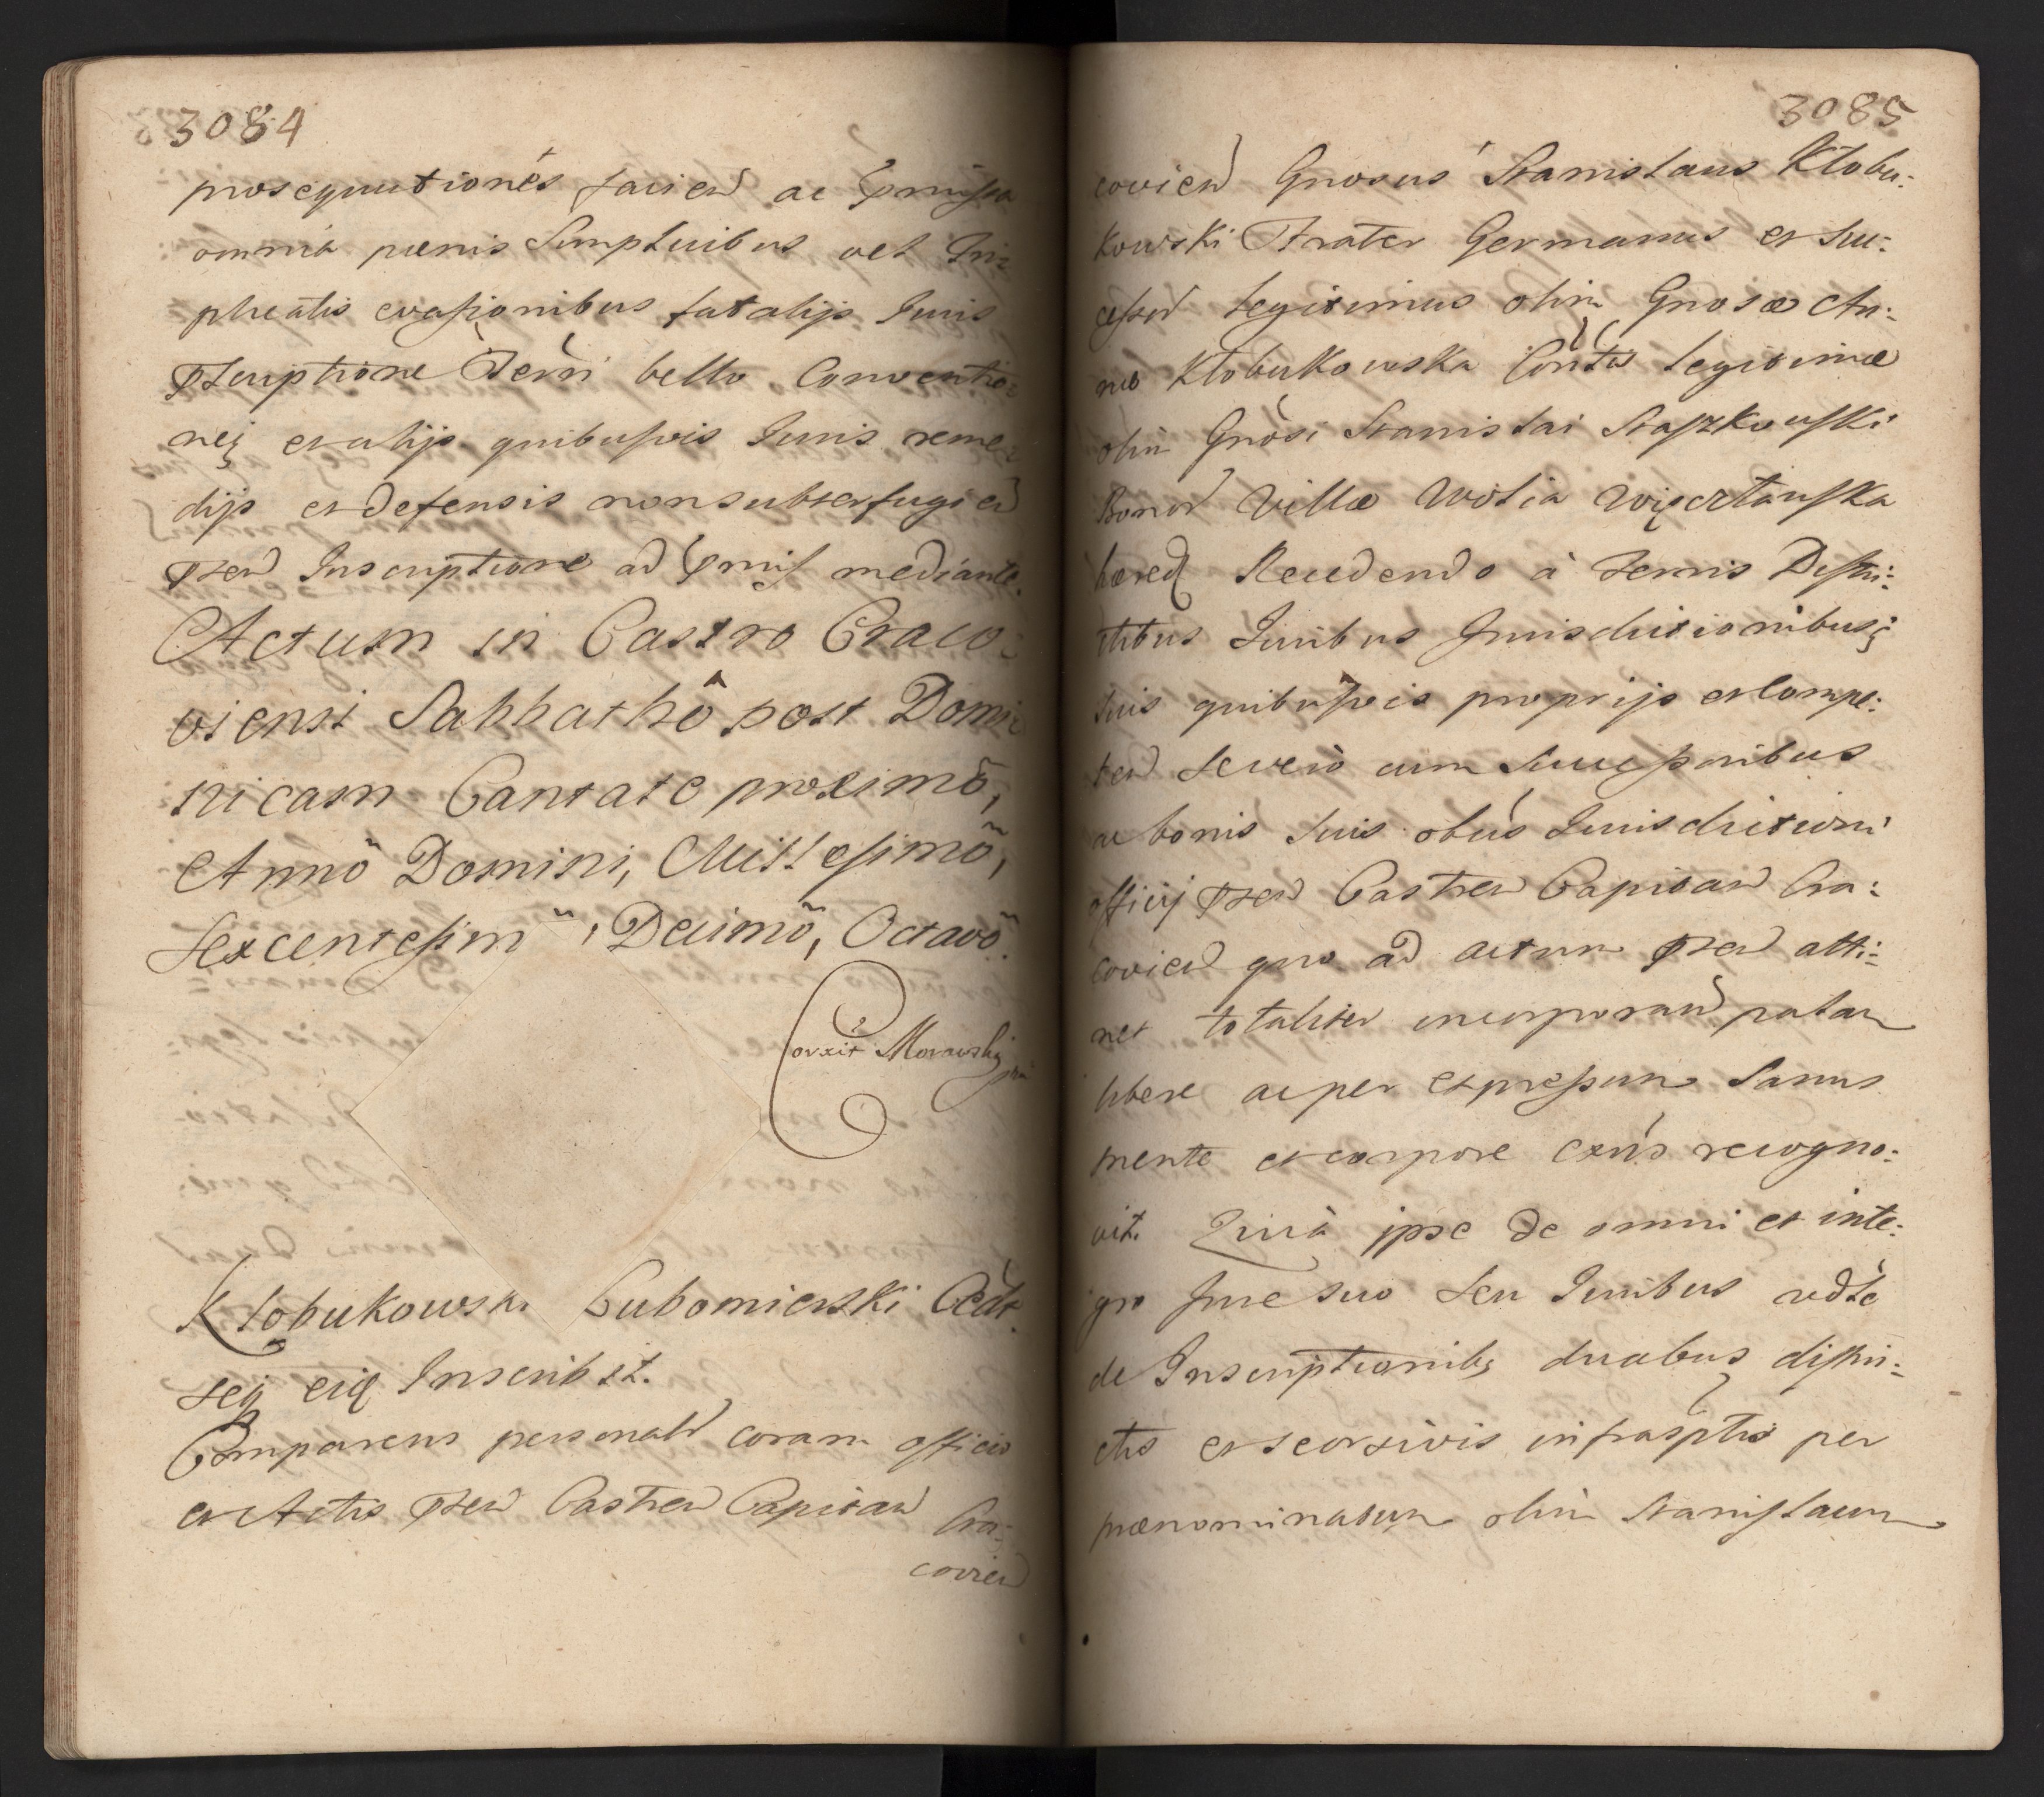 3084
prosequutiones facien ac pmissa
omnia pœnis Sumptuibus vel Tri
plicatis evasionibus fatalijs Iuris
Pscriptione Terri bello Conventio=
neq et alijs quibusvis Iuris reme=
dijs et defensis non subterfugien
Pnen Inscriptione ad pmiss mediante.
Actum in Castro Craco=
viensi Sabbathô post Domi=
nicam Cantate proximô,
Annô Domini, Millesimô,
Sexcentesimô, Decimô, Octavô.
Corxit Morawski
Kłobukowski Lubomierski Cedit
seq eiq Inscribit.
Comparens personalr coram officio
et Actis Pnen Castren Capitan Cra=
covien
3085
covien Gnosus Stanislaus Kłobu:
kowski Frater Germanus et suc:
cessor legitimus olim Gnosæ An:
næ Kłobukowska Contis legitimæ
olim Gnosi Stanislai Staszkowski
Bonor Villæ Wolia Więcrtawska
hæred Recedendo à terris Distri:
ctibus Iuribus Jurisdictionibusq
suis quibusvis proprijs et Compe:
ten severò cum Successoribus
ac bonis suis obus Iurisdictioni
officij Pnen Castren Capitan Cra:
covien quo ad actum Pnen atti:
net totaliter incorporan palam
libere ac per expressum Sanus
mente et corpore exns recogno:
vit. Quia ipse de omni et inte:
gro Jure suo seu Iuribus
de Inscriptionibq duabus distin:
ctis et seorsivis infrasptis per
prænominatum olim Stanislaum